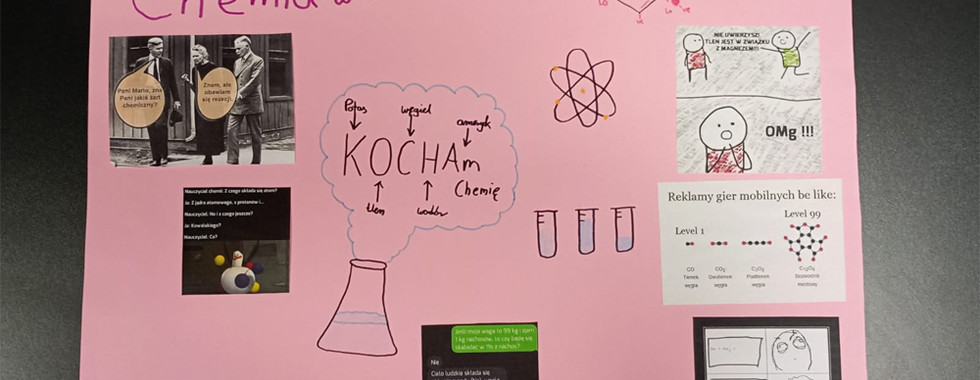 Chemia w
Pani Mario, zna
Pani jakiś żart
chemiczny?
Znam, ale
obawiam
się reakcji.
Potas
węgiel
ameryk
KOCHAm
Chemię
tlen
wodór
NIE UWIERZYSZ!
TLEN JEST W ZWIĄZKU
Z MAGNEZEM!!!
OMg !!!
Nauczyciel chemii: Z czego składa się atom?
Ja: Z jądra atomowego, z protonów i...
Nauczyciel: No i z czego jeszcze?
Ja: Kowalskiego?
Nauczyciel: Co?
Reklamy gier mobilnych be like:
Level 1
Level 99
CO
Tlenek
węgla
CO₂
Dwutlenek
węgla
węgla
Jeśli moja waga to 99 kg i zjem
1 kg nachosów, to czy będę się
składać w 1% z nachos?
Nie
Ciało ludzkie składa się